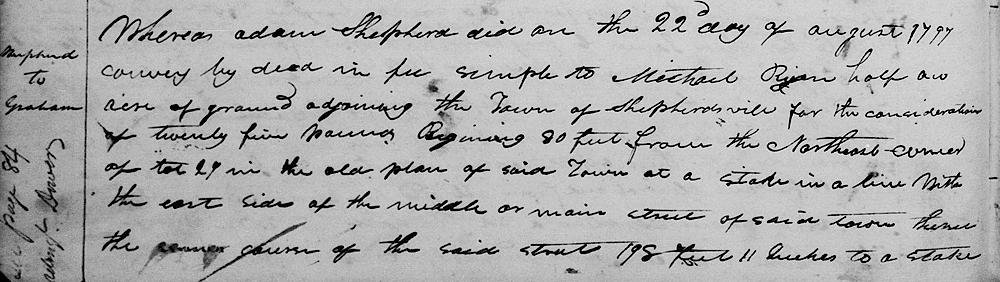 Whereas adam Shepherd did on the 22d day of august 1797
convey by deed in fee simple to Michael Ryan half an
acre of ground adjoining the Town of Shepherdsville for the consideration
of twenty five pounds Begining 80 feet from the Northeast corner
of lot 29 in the old plan of said Town at a stake in a line With
the east side of the middle or main street of said town thence
the course of the said street 198 feet 11 Inches to a stake
Shepherd
to
Graham
page 84